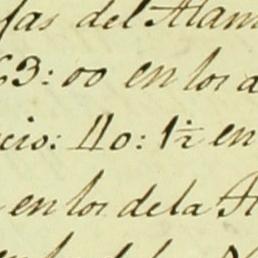 jas del Alam
63: 00 en los d
cio: 40: 1½ en
en los de la A